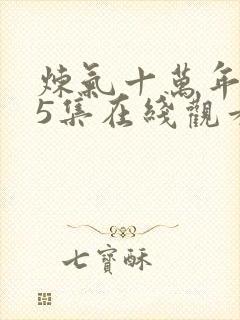 煉氣十萬年
5集在綫觀
七寶酥